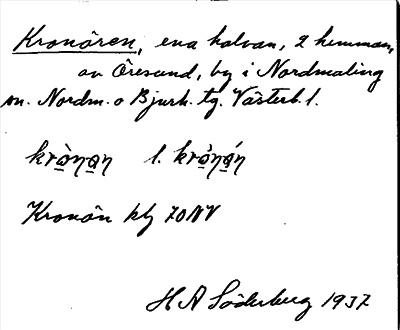 Kronören, ena halvan, 2 hemman,
av Öresund, by i Nordmaling
sn. Nordm. o Bjurh. tg. Västerb. l.
l.
Kronön kbl 70 NV
H A Söderberg 1937